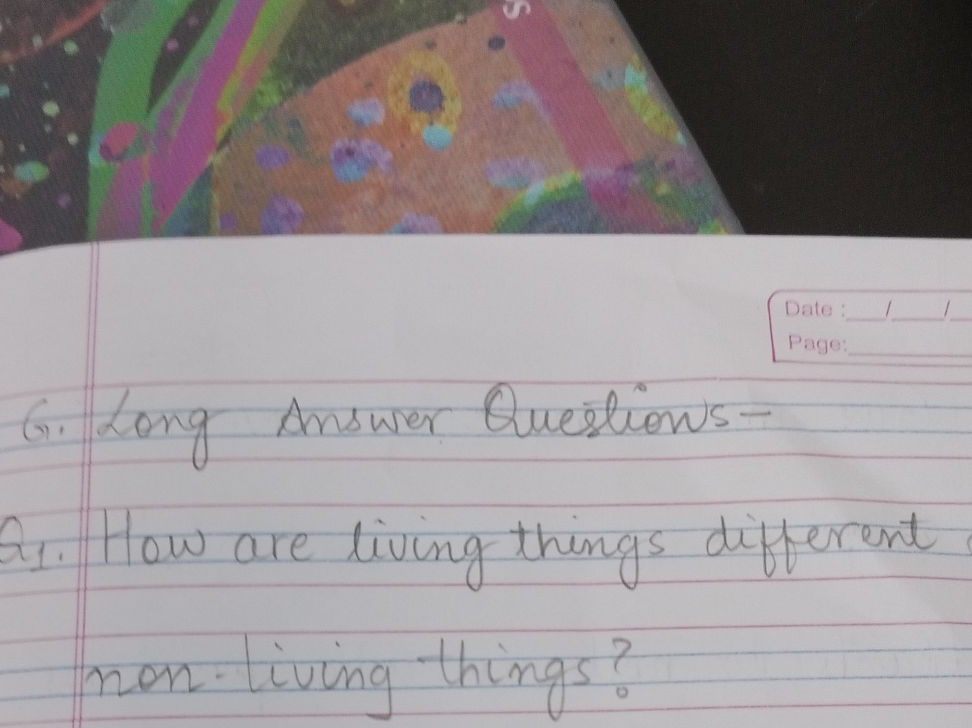 S
Date : __/__/__
Page:
G. Long Answer Questions-
Q1. How are living things different
non-living things?